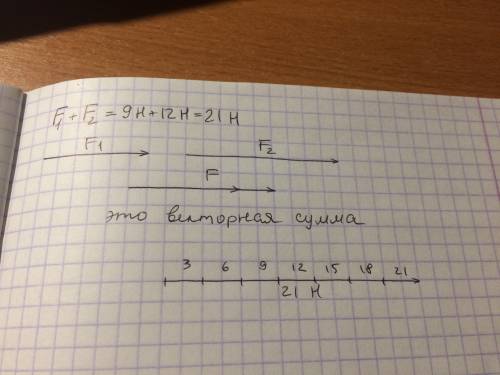 F₁ + F₂ = 9Н + 12Н = 21 Н
F₁ F₂
F
это векторная сумма
3 6 9 12 15 18 21
21 Н